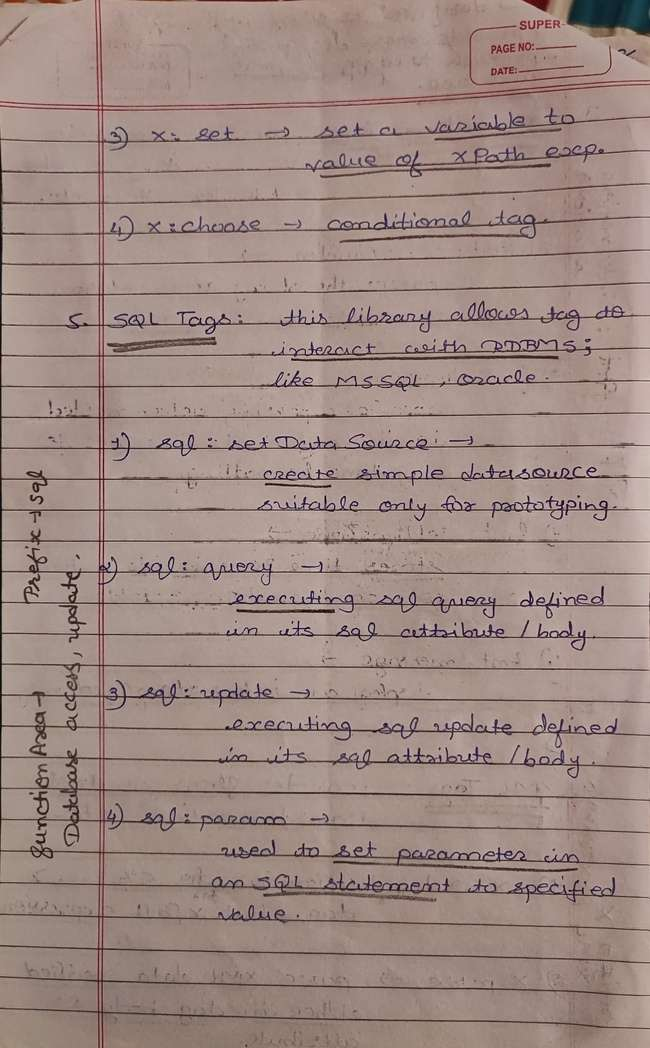 SUPER
PAGE NO:
DATE:
3) x: set → set a variable to
value of xPath exp.
4) x: choose → conditional tag.
5. SQL Tags: this library allows tag to
interact with RDBMS;
like MSSQL, oracle.
1) sql: set Data Source: →
create simple datasource
suitable only for prototyping.
2) sql: query →
executing sql query defined
in its sql attribute / body.
3) sql: update →
executing sql update defined
in its sql attribute / body.
4) sql: param →
used to set parameter in
an SQL statement to specified
value.
Function Area → Prefix → sql
Database access, update.